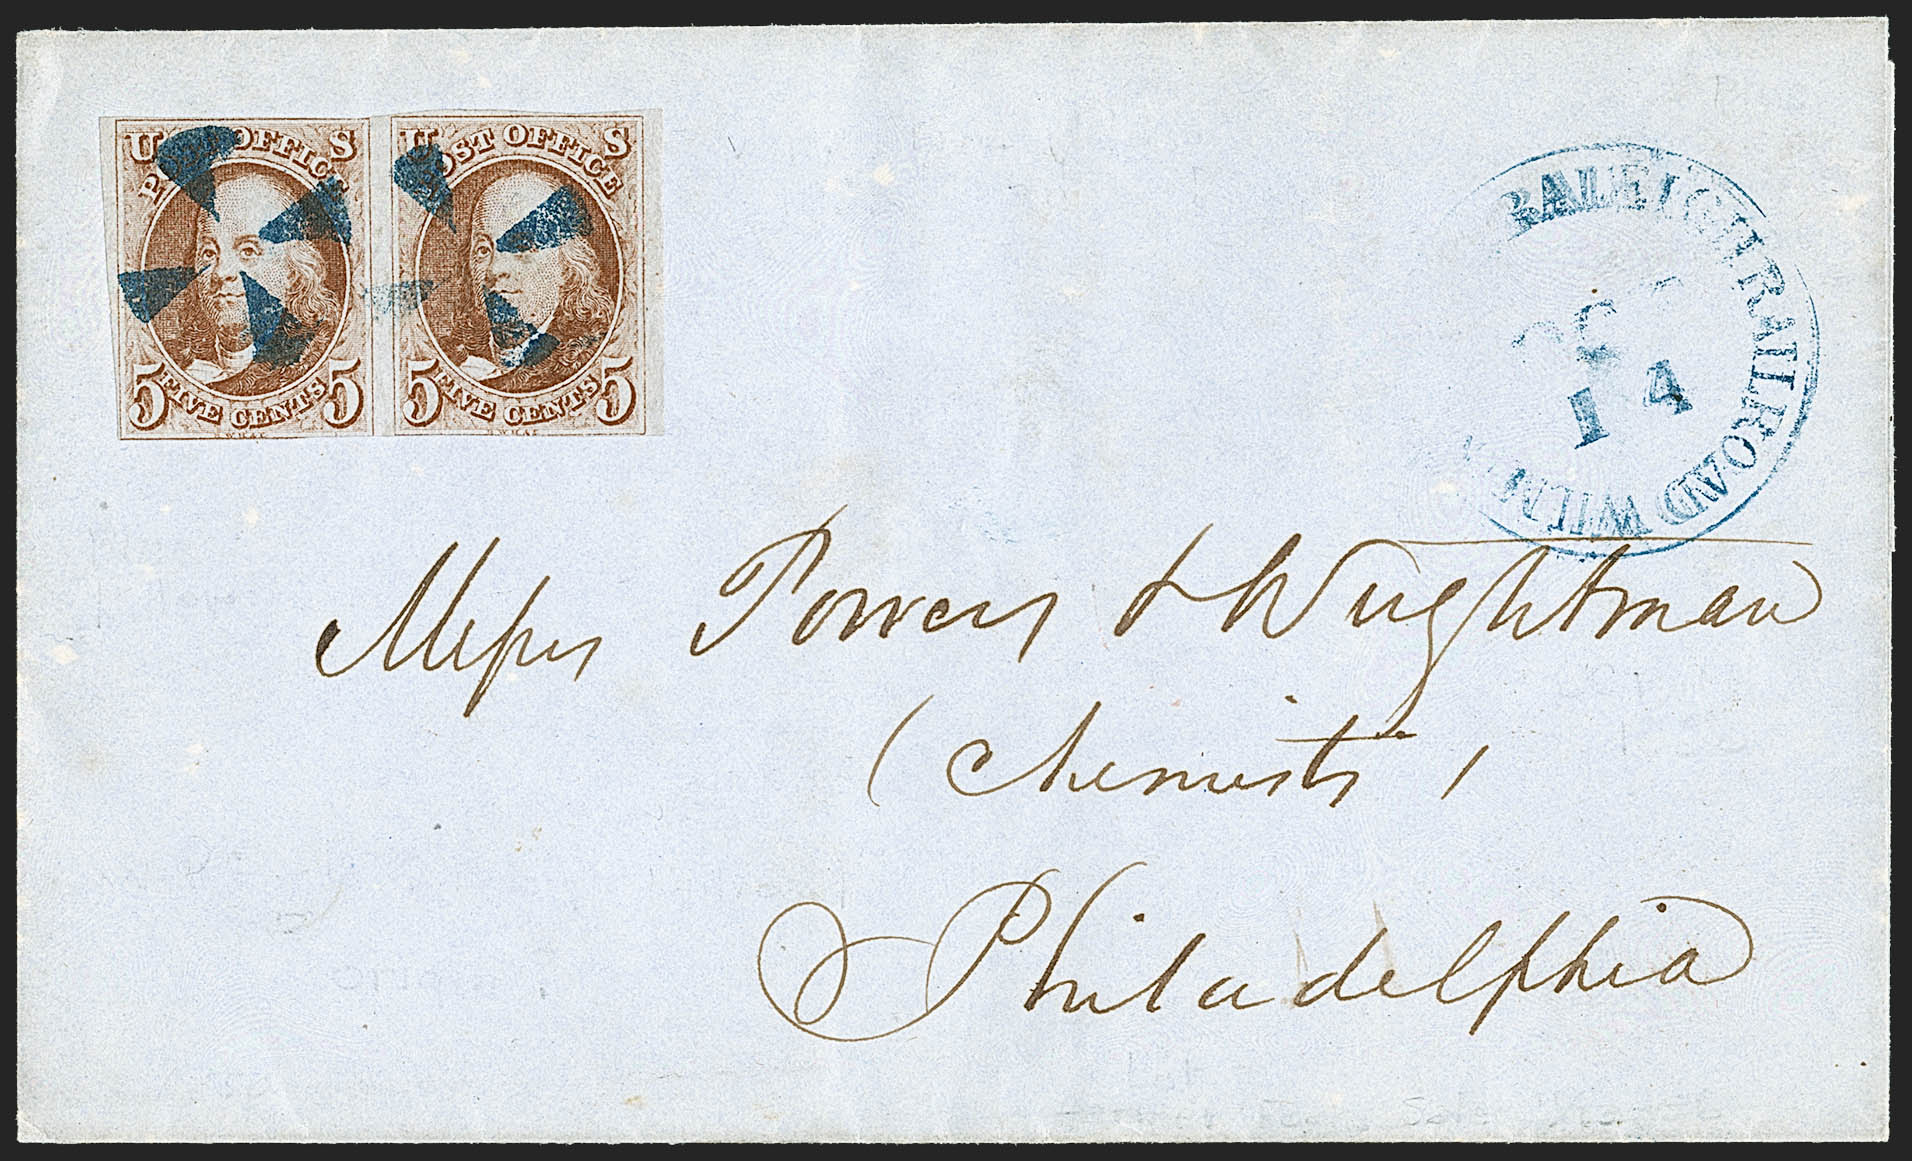 U POST OFFICE S
5 FIVE CENTS 5
R.W.H.& E.
U POST OFFICE S
5 FIVE CENTS 5
R.W.H.& E.
RALEIGH RAILROAD
14
Messrs Powers & Wightman
(Chemists)
Philadelphia